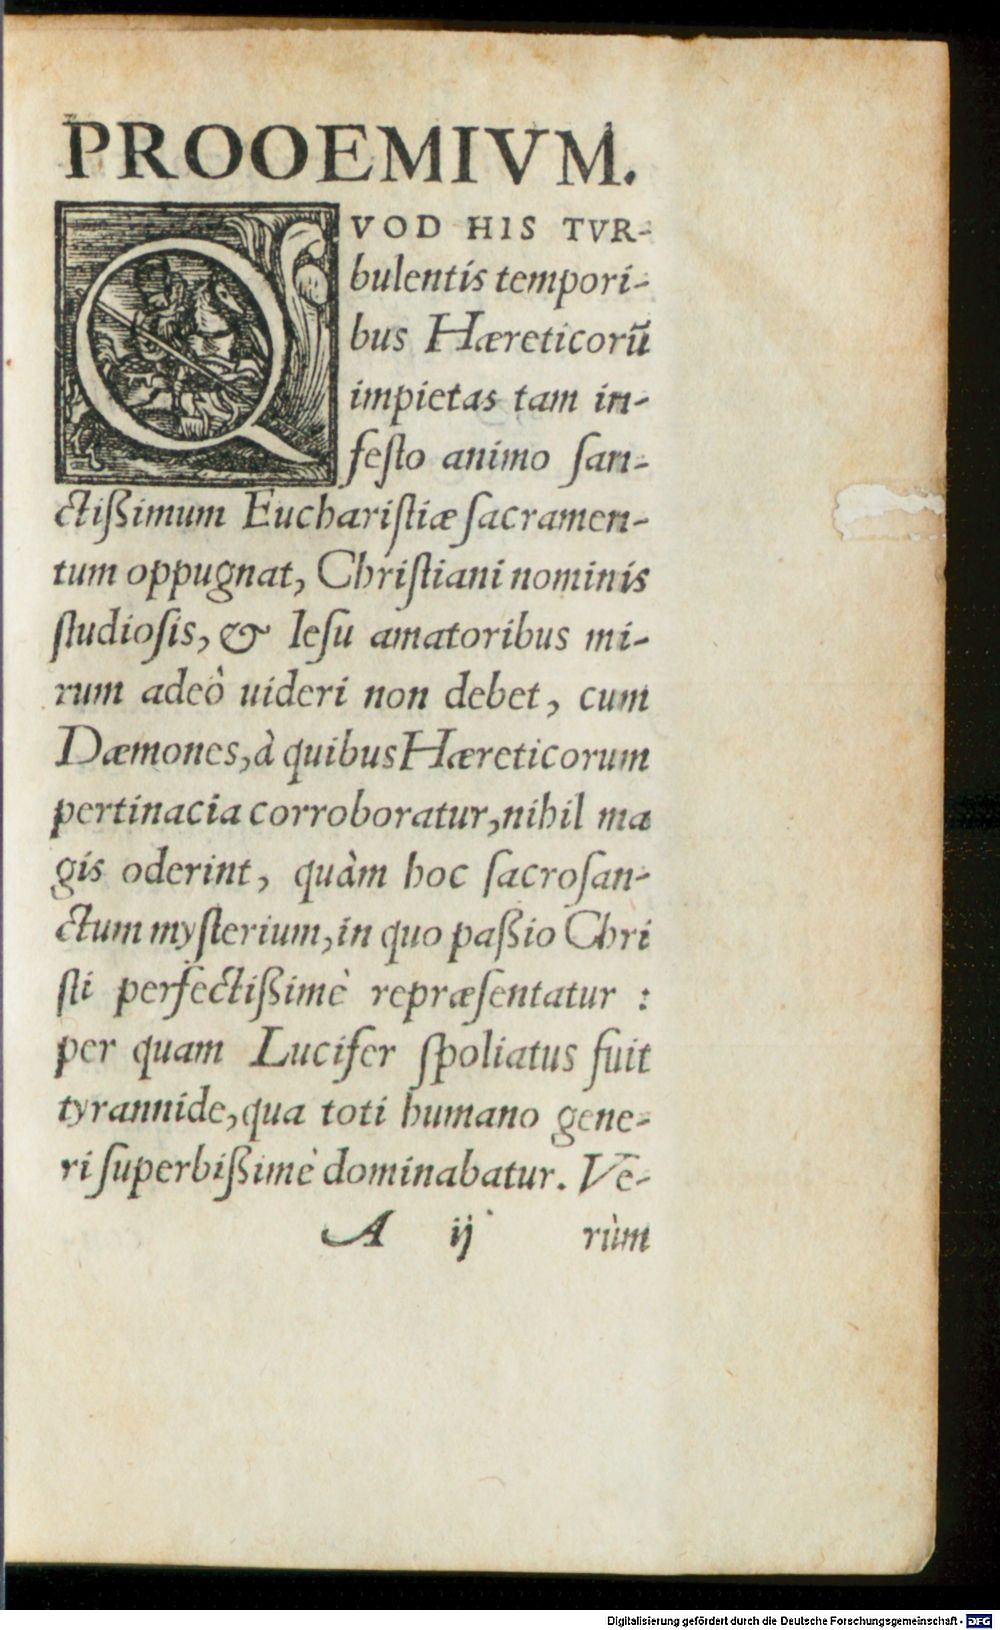 PROOEMIVM.
QVOD HIS TVR-
bulentis tempori-
bus Hæreticorũ
impietas tam in-
festo animo san-
ctißimum Eucharistiæ sacramen-
tum oppugnat, Christiani nominis
studiosis, & Iesu amatoribus mi-
rum adeò uideri non debet, cum
Dæmones, à quibus Hæreticorum
pertinacia corroboratur, nihil ma
gis oderint, quàm hoc sacrosan-
ctum mysterium, in quo paßio Chri
sti perfectißimè repræsentatur :
per quam Lucifer spoliatus fuit
tyrannide, qua toti humano gene-
ri superbißimè dominabatur. Ve-
A ij rùm
Digitalisierung gefördert durch die Deutsche Forschungsgemeinschaft - DFG